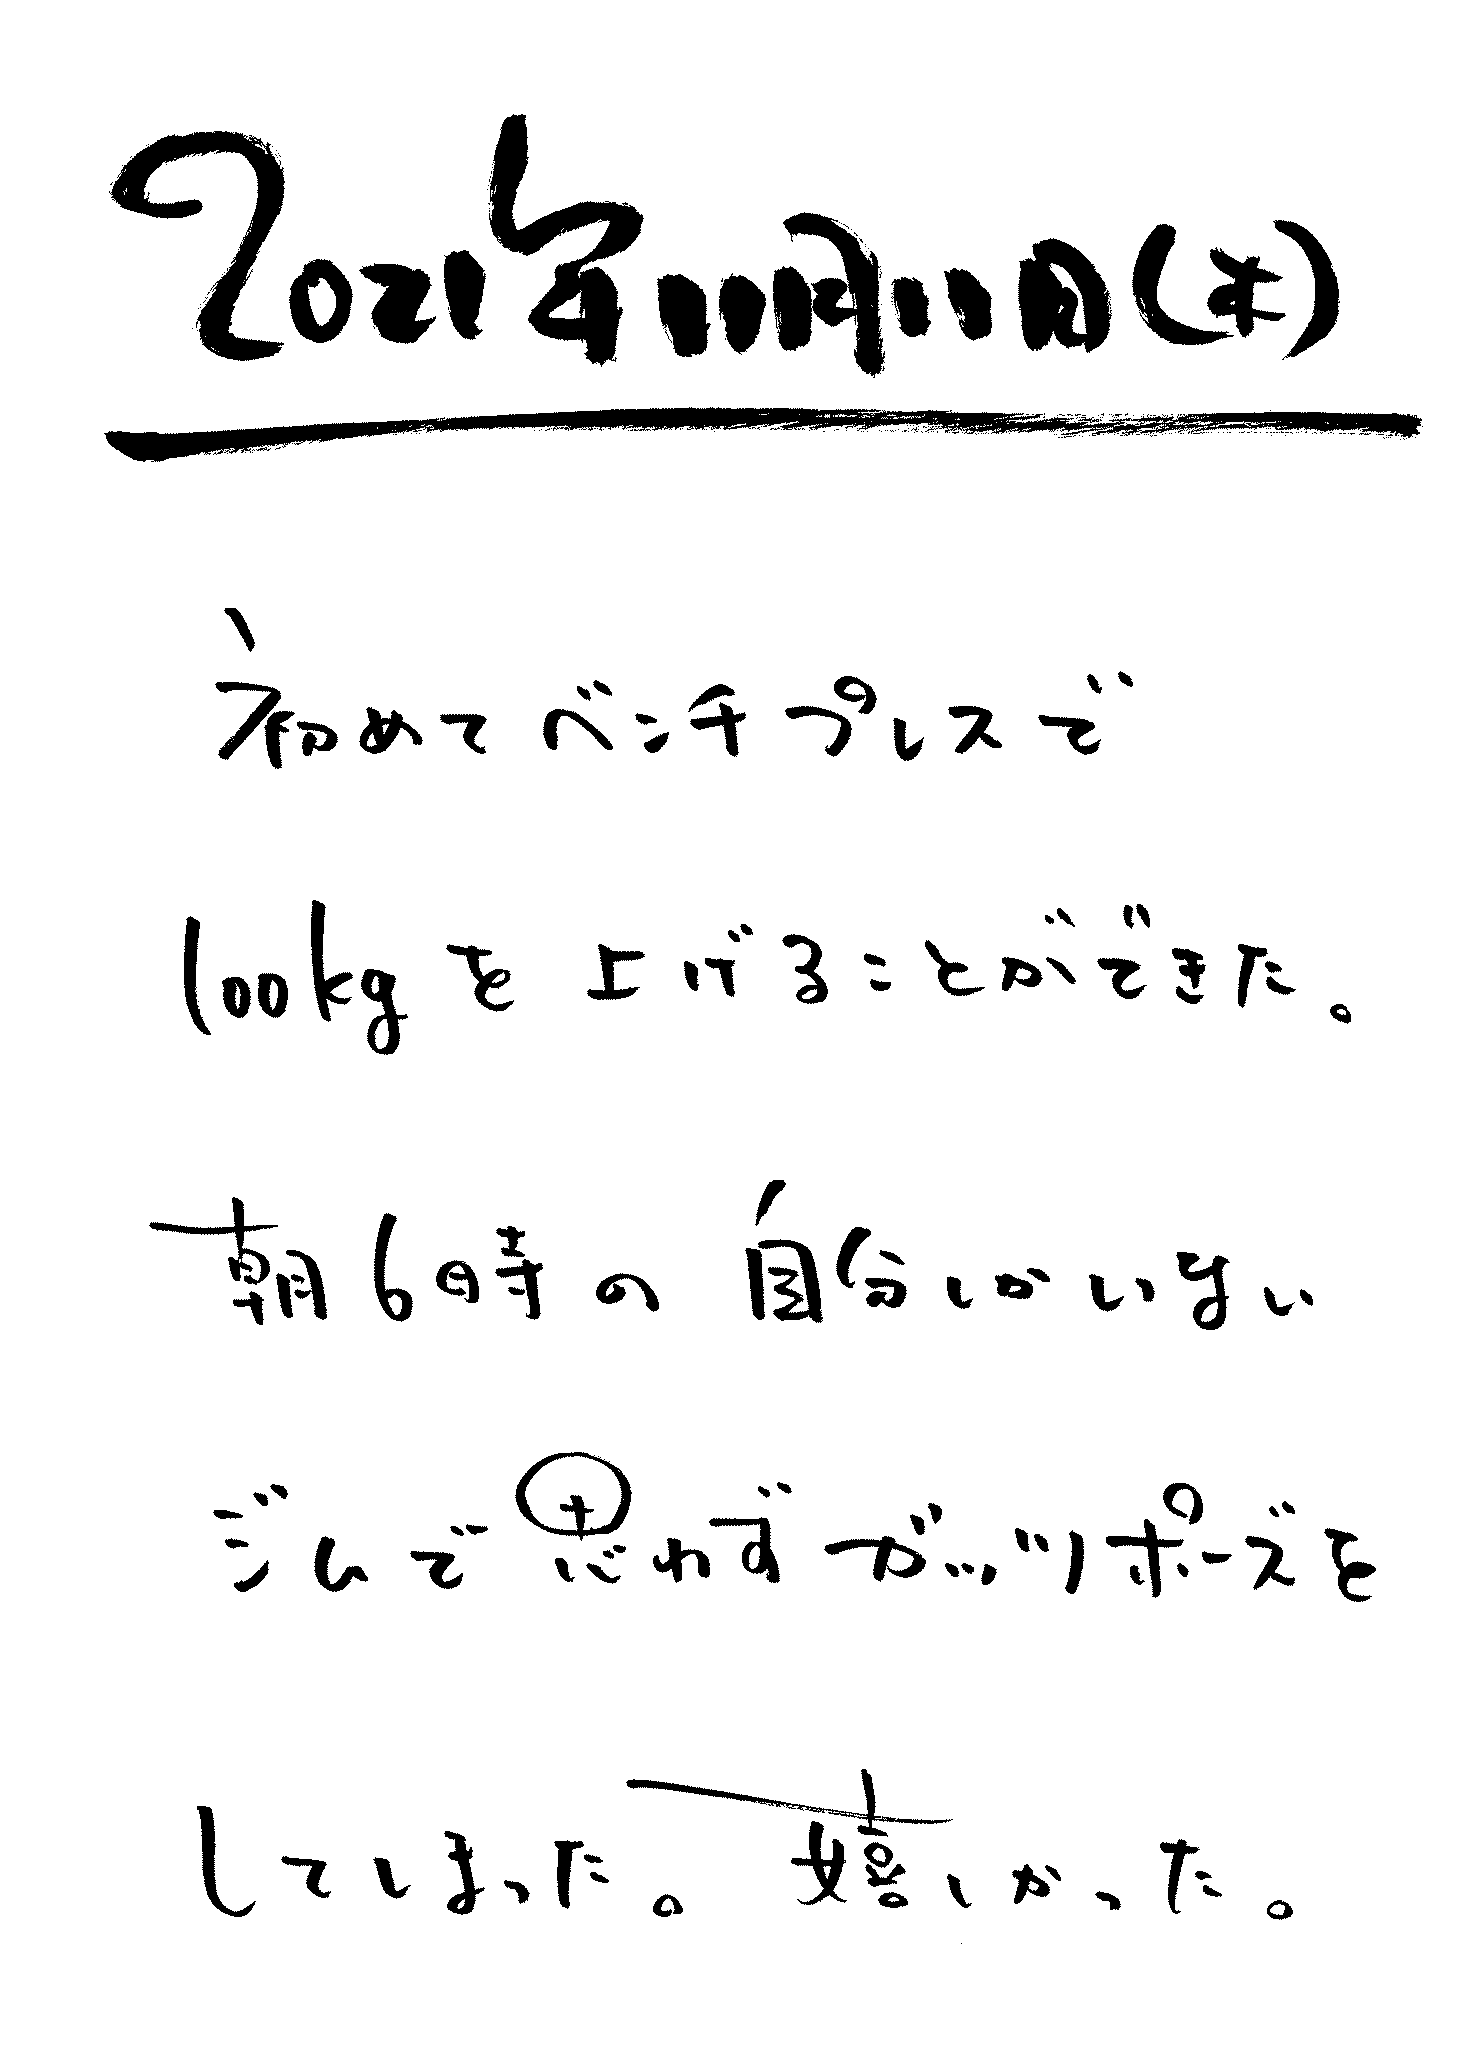 2021年11月11日(木)
初めてベンチプレスで
100kgを上げることができた。
朝6時の自分しかいない
ジムで思わずガッツポーズを
してしまった。嬉しかった。